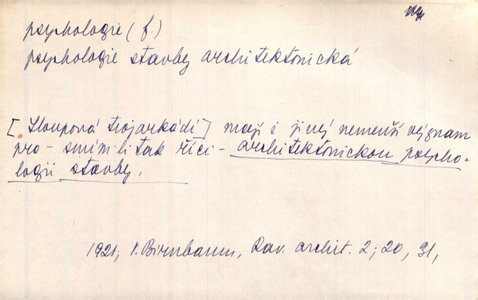 psychologie (f)
psychologie stavby architektonická
[Sloupová trojarkádí] mají i jiný nemenší význam
pro - smím-li tak říci - architektonickou psycho-
logii stavby.
1921, V. Birnbaum, Rav. archit. 2; 20, 31,